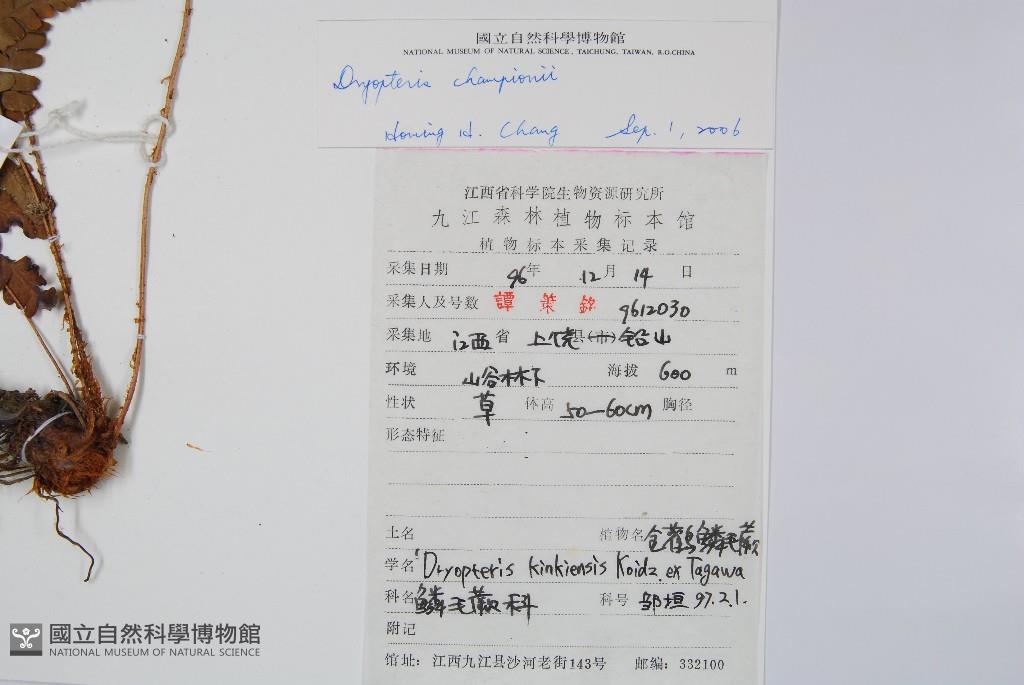 國立自然科學博物館
NATIONAL MUSEUM OF NATURAL SCIENCE, TAICHUNG, TAIWAN, R.O.CHINA
Dryopteris championii
Homing H. Chang Sep. 1, 2006
江西省科学院生物资源研究所
九江森林植物标本馆
植物标本采集记录
采集日期 96年 12月 14日
采集人及号数 譚策銘 9612030
采集地 江西省 上饶县(市)铅山
环境 山谷林下 海拔 600 m
性状 草 体高 50—60cm 胸径
形态特征
土名 植物名 鳞毛蕨
学名 Dryopteris kinkiensis Koidz. ex Tagawa
科名 鳞毛蕨科 科号 邹垣 97.2.1.
附记
馆址：江西九江县沙河老街143号 邮编：332100
國立自然科學博物館
NATIONAL MUSEUM OF NATURAL SCIENCE